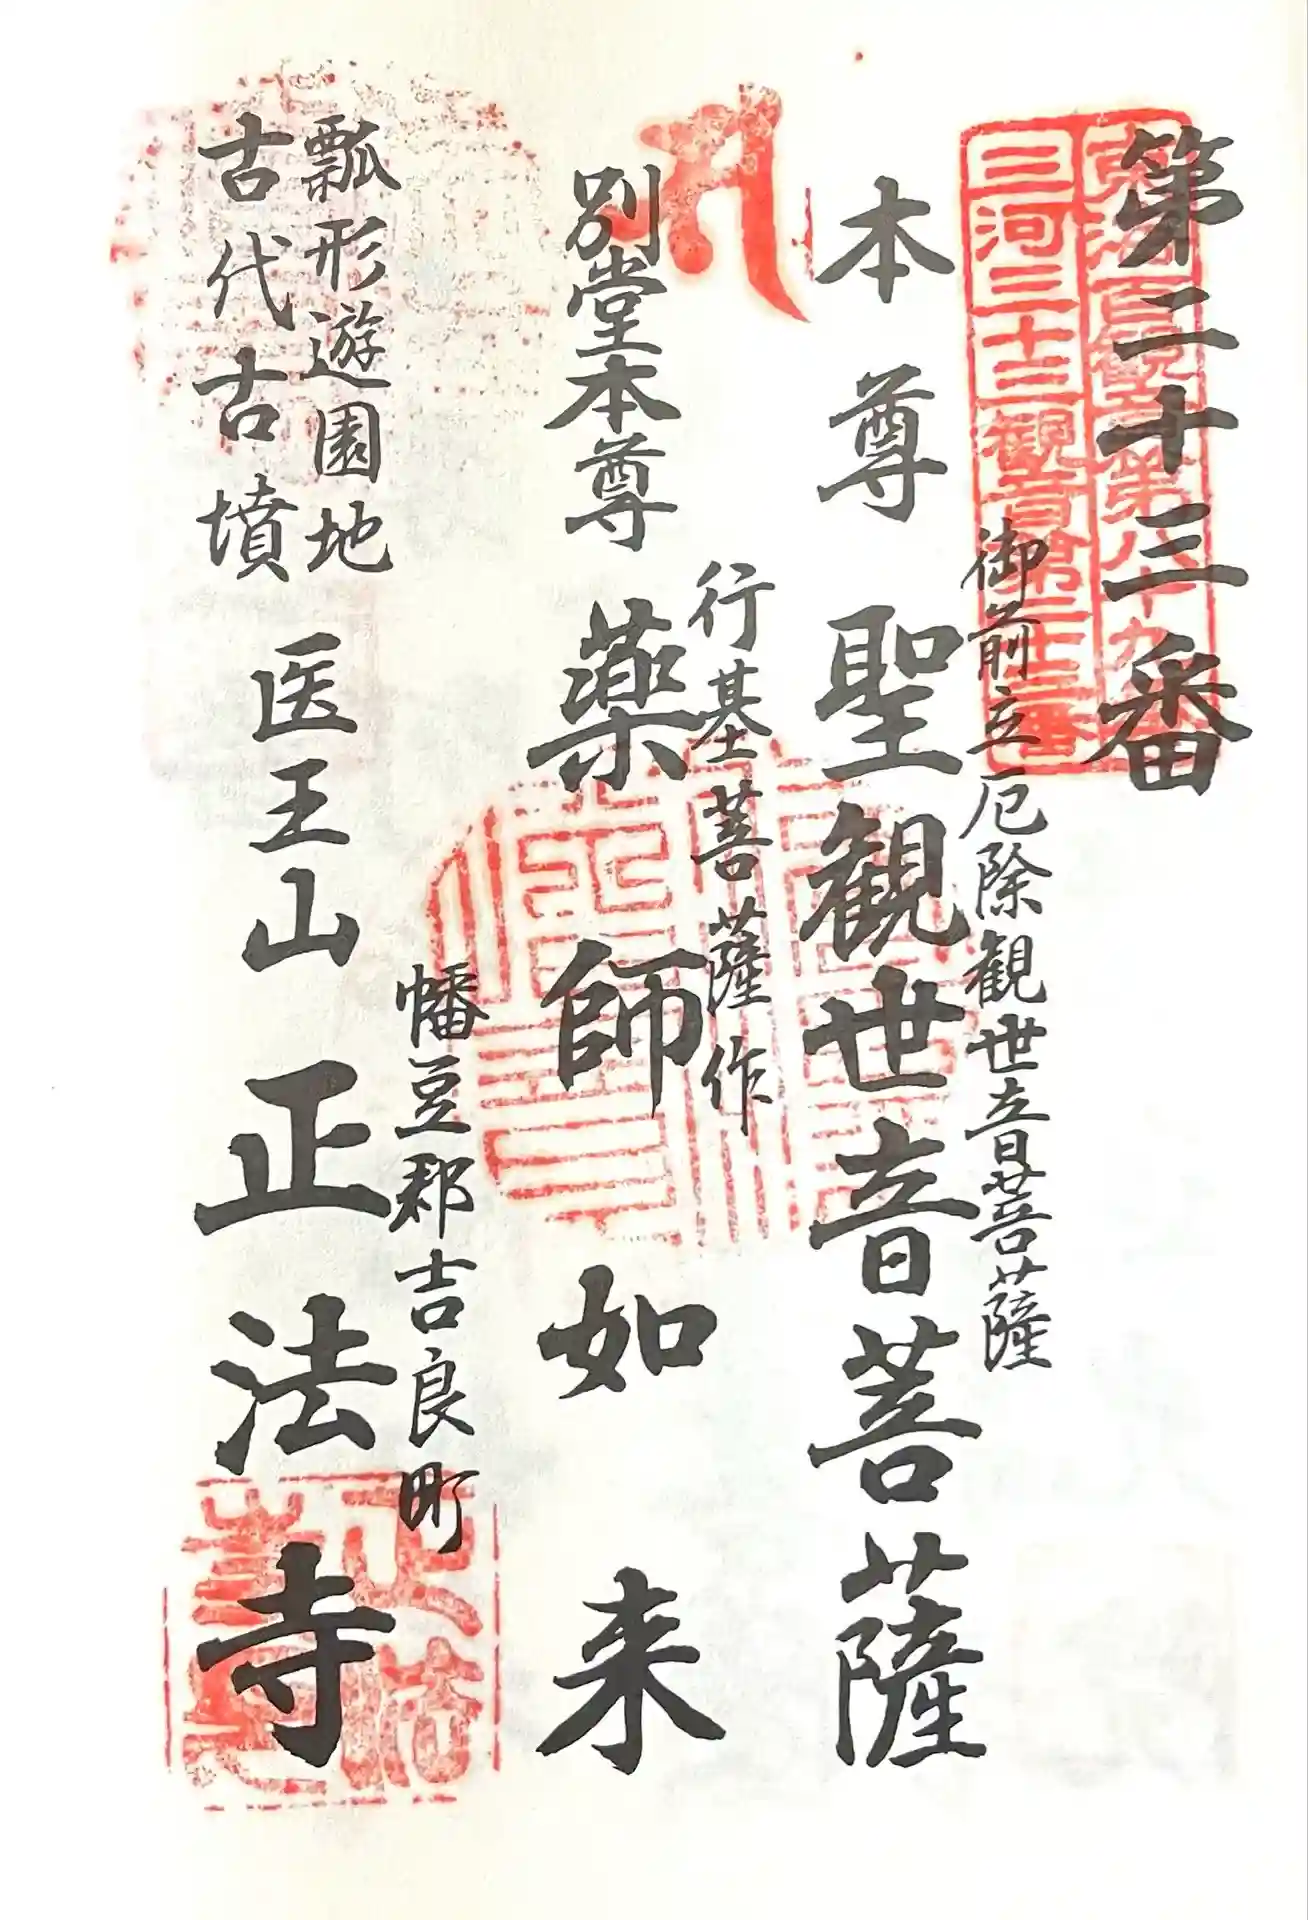 第二十三番
東海百観音第八十九番
三河三十三観音第二十三番
御前立 厄除観世音菩薩
本尊 聖観世音菩薩
行基菩薩作
別堂本尊 薬師如来
幡豆郡吉良町
瓢形遊園地
古代古墳 医王山 正法寺